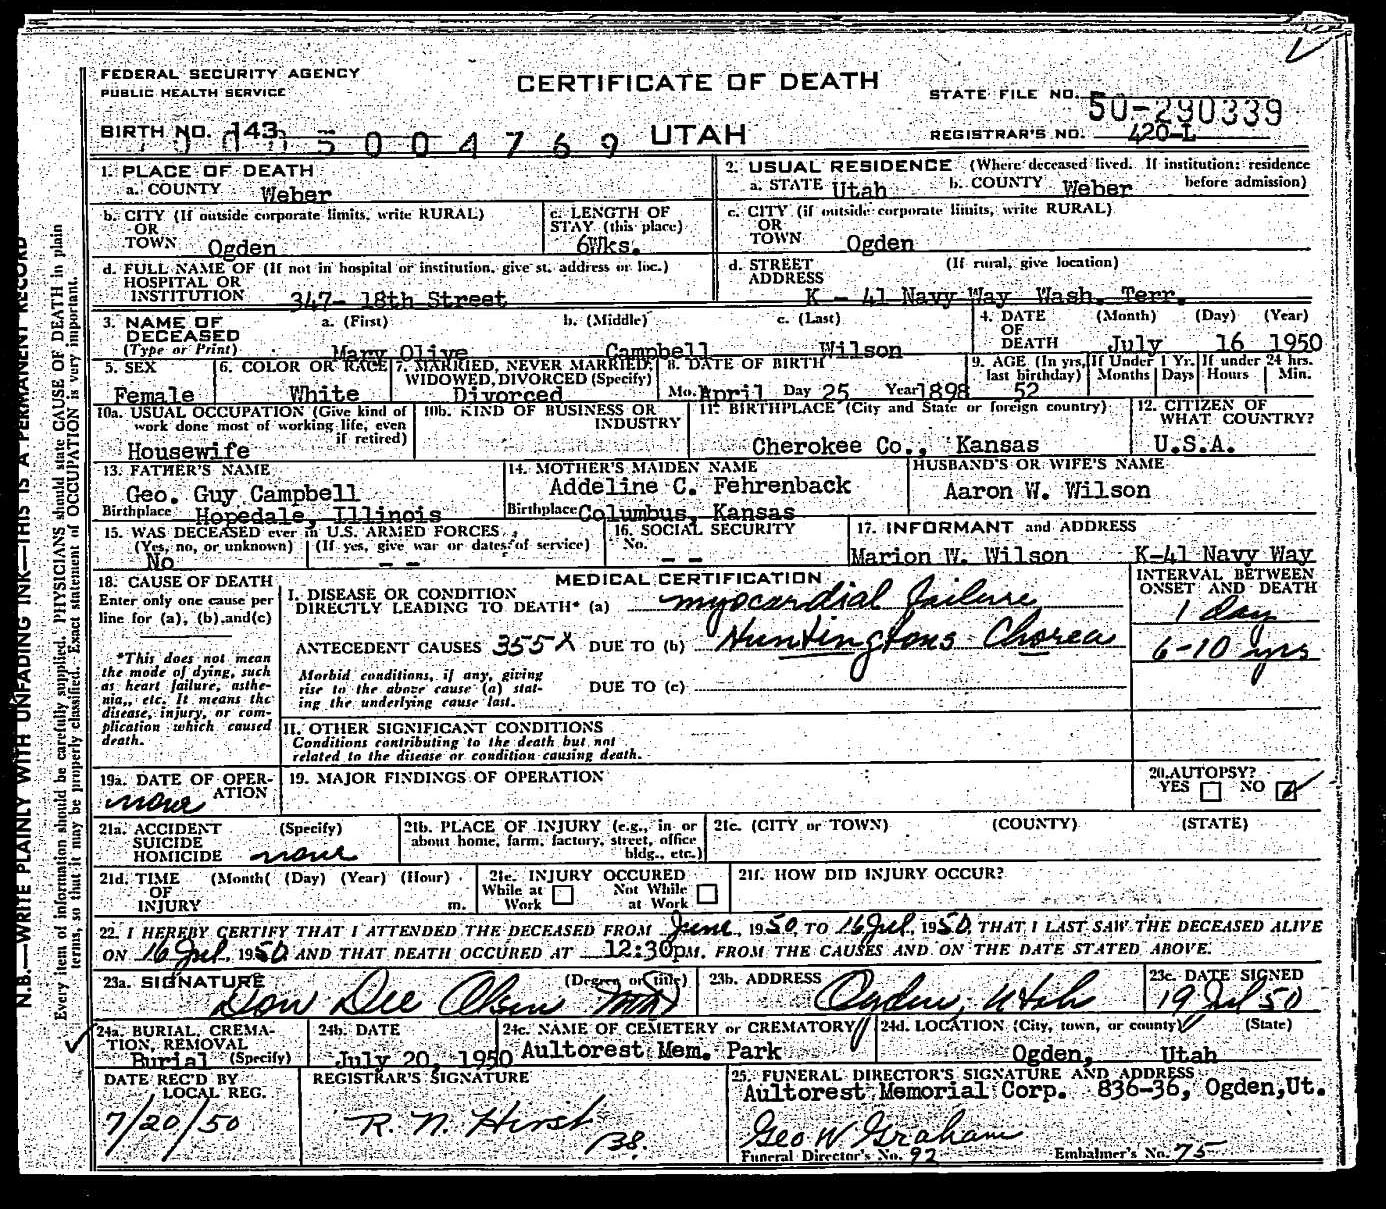 FEDERAL SECURITY AGENCY
PUBLIC HEALTH SERVICE
CERTIFICATE OF DEATH
STATE FILE NO. 50-290339
BIRTH NO. 143
5004769
UTAH
REGISTRAR'S NO. 420-L
1. PLACE OF DEATH
a. COUNTY Weber
2. USUAL RESIDENCE (Where deceased lived. If institution: residence before admission)
a. STATE Utah b. COUNTY Weber
b. CITY (If outside corporate limits, write RURAL)
OR
TOWN Ogden
c. LENGTH OF
STAY (this place)
6Wks.
c. CITY (if outside corporate limits, write RURAL)
OR
TOWN Ogden
d. FULL NAME OF (If not in hospital or institution, give st. address or loc.)
HOSPITAL OR
INSTITUTION 347- 18th Street
d. STREET (If rural, give location)
ADDRESS K - 41 Navy Way Wash. Terr.
3. NAME OF
DECEASED
(Type or Print)
a. (First) b. (Middle) c. (Last)
Mary Olive Campbell Wilson
4. DATE
OF
DEATH
(Month) (Day) (Year)
July 16 1950
5. SEX
Female
6. COLOR OR RACE
White
7. MARRIED, NEVER MARRIED,
WIDOWED, DIVORCED (Specify)
Divorced
8. DATE OF BIRTH
Mo. April Day 25 Year 1898
9. AGE (In yrs.
last birthday)
52
If Under 1 Yr.
Months Days
If under 24 hrs.
Hours Min.
10a. USUAL OCCUPATION (Give kind of
work done most of working life, even
if retired)
Housewife
10b. KIND OF BUSINESS OR
INDUSTRY
11. BIRTHPLACE (City and State or foreign country)
Cherokee Co., Kansas
12. CITIZEN OF
WHAT COUNTRY?
U.S.A.
13. FATHER'S NAME
Geo. Guy Campbell
Birthplace Hopedale, Illinois
14. MOTHER'S MAIDEN NAME
Addeline C. Fehrenback
Birthplace Columbus, Kansas
HUSBAND'S OR WIFE'S NAME
Aaron W. Wilson
15. WAS DECEASED ever in U.S. ARMED FORCES
(Yes, no, or unknown) (If yes, give war or dates of service)
No - -
16. SOCIAL SECURITY
No.
- -
17. INFORMANT and ADDRESS
Marion W. Wilson K-41 Navy Way
18. CAUSE OF DEATH
Enter only one cause per
line for (a), (b), and (c)
*This does not mean
the mode of dying, such
as heart failure, asthe-
nia, etc. It means the
disease, injury, or com-
plication which caused
death.
MEDICAL CERTIFICATION
I. DISEASE OR CONDITION
DIRECTLY LEADING TO DEATH* (a) myocardial failure
ANTECEDENT CAUSES 355X DUE TO (b) Huntingtons Chorea
Morbid conditions, if any, giving
rise to the above cause (a) stat-
ing the underlying cause last.
DUE TO (c)
INTERVAL BETWEEN
ONSET AND DEATH
1 day
6-10 yrs
II. OTHER SIGNIFICANT CONDITIONS
Conditions contributing to the death but not
related to the disease or condition causing death.
19a. DATE OF OPER-
ATION
none
19. MAJOR FINDINGS OF OPERATION
20. AUTOPSY?
YES NO
21a. ACCIDENT (Specify)
SUICIDE
HOMICIDE none
21b. PLACE OF INJURY (e.g., in or
about home, farm, factory, street, office
bldg., etc.)
21c. (CITY or TOWN) (COUNTY) (STATE)
21d. TIME (Month( (Day) (Year) (Hour)
OF
INJURY m.
21e. INJURY OCCURED
While at Work Not While at Work
21f. HOW DID INJURY OCCUR?
22. I HEREBY CERTIFY THAT I ATTENDED THE DECEASED FROM June, 1950 TO 16 Jul, 1950, THAT I LAST SAW THE DECEASED ALIVE
ON 16 Jul, 1950, AND THAT DEATH OCCURED AT 12:30pM. FROM THE CAUSES AND ON THE DATE STATED ABOVE.
23a. SIGNATURE (Degree or title)
Don Dee Olsen MD
23b. ADDRESS
Ogden, Utah
23c. DATE SIGNED
19 Jul 50
24a. BURIAL, CREMA-
TION, REMOVAL
Burial (Specify)
24b. DATE
July 20, 1950
24c. NAME OF CEMETERY or CREMATORY
Aultorest Mem. Park
24d. LOCATION (City, town, or county) (State)
Ogden, Utah
DATE REC'D BY
LOCAL REG.
7/20/50
REGISTRAR'S SIGNATURE
R. N. Hirst
25. FUNERAL DIRECTOR'S SIGNATURE AND ADDRESS
Aultorest Memorial Corp. 836-36, Ogden,Ut.
Geo W Graham
Funeral Director's No. 92 Embalmer's No. 75
N.B.—WRITE PLAINLY WITH UNFADING INK—THIS IS A PERMANENT RECORD
Every item of information should be carefully supplied. PHYSICIANS should state CAUSE OF DEATH in plain
terms, so that it may be properly classified. Exact statement of OCCUPATION is very important.